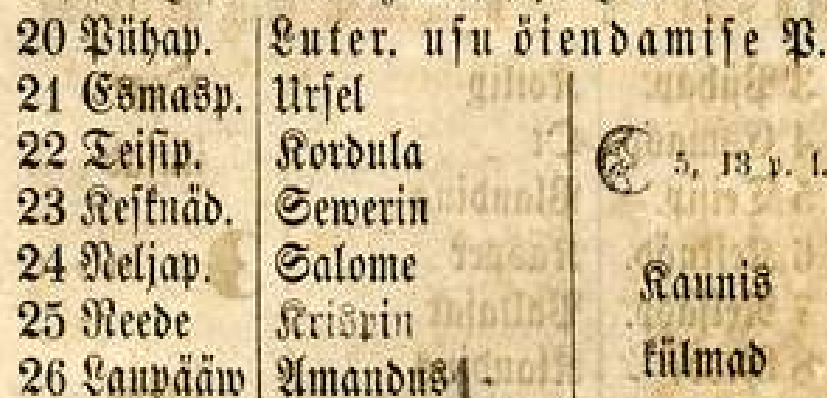 20 Pühap. Luter. usu öiendamise P.
21 Esmasp. Ursel
22 Teisip. Kordula
5, 13 p. l.
23 Kesknäd. Sewerin
24 Neljap. Salome
Kaunis
25 Reede Krispin
külmad
26 Laupääw Amandus